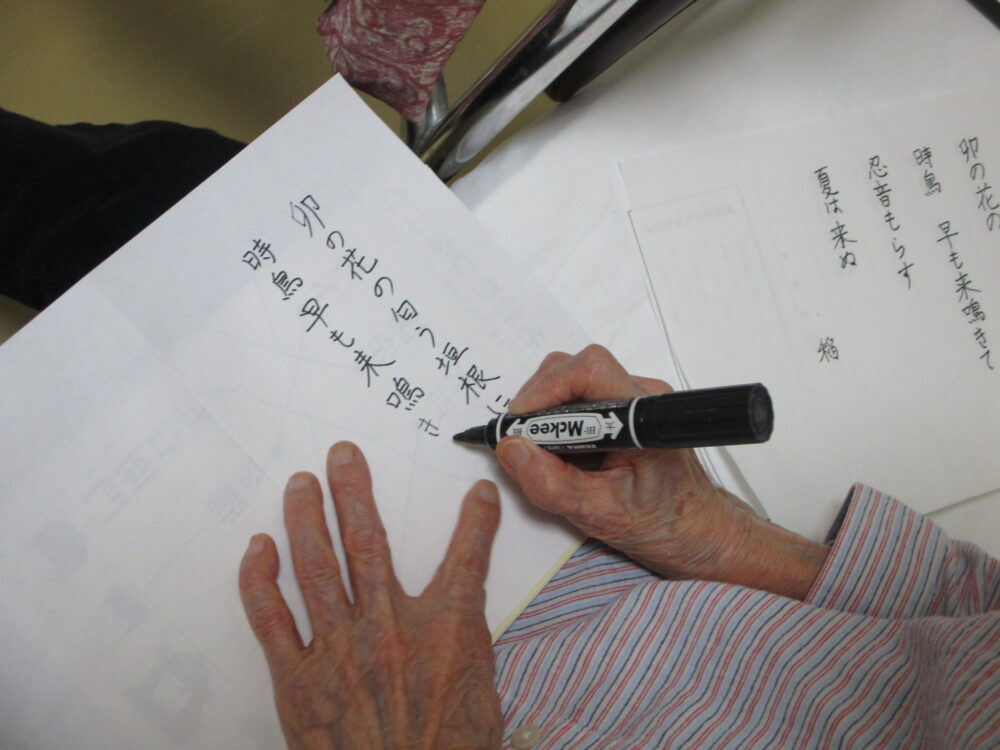 卯の花の匂う垣根に
時鳥早も来鳴き
卯の花の
時鳥 早も来鳴きて
忍音もらす
夏は来ぬ
Mckee
ZEBRA
太